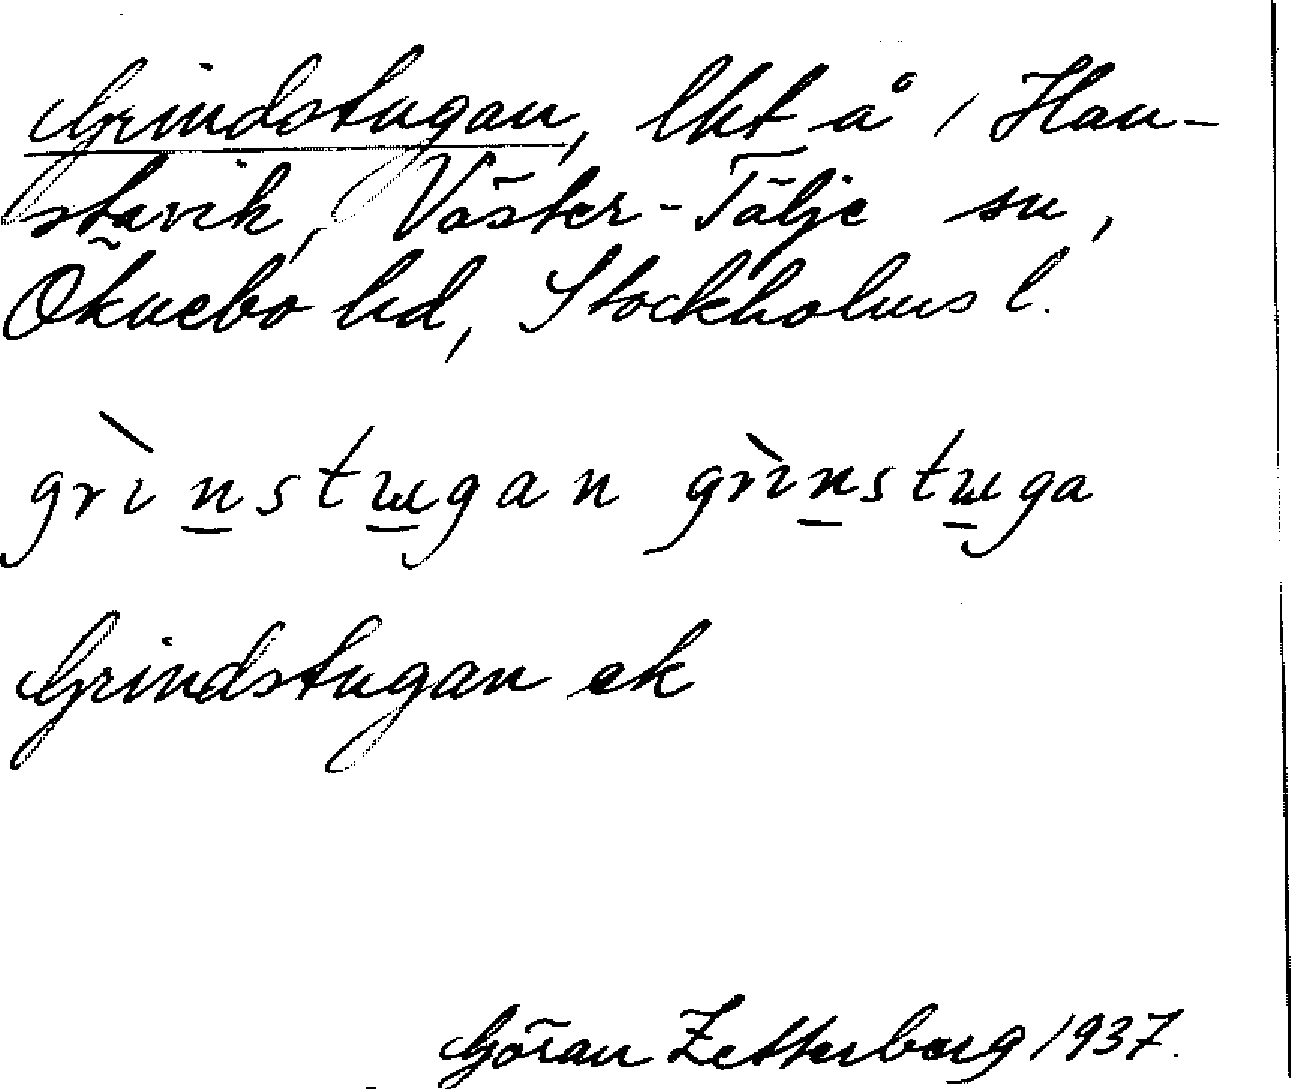 Grindstugan, lht å 1 Han-
stavik, Väster-Tälje sn,
Öknebo hd, Stockholms l.
grìnstɯgan grìnstɯga
Grindstugan ek
Göran Zetterberg 1937.